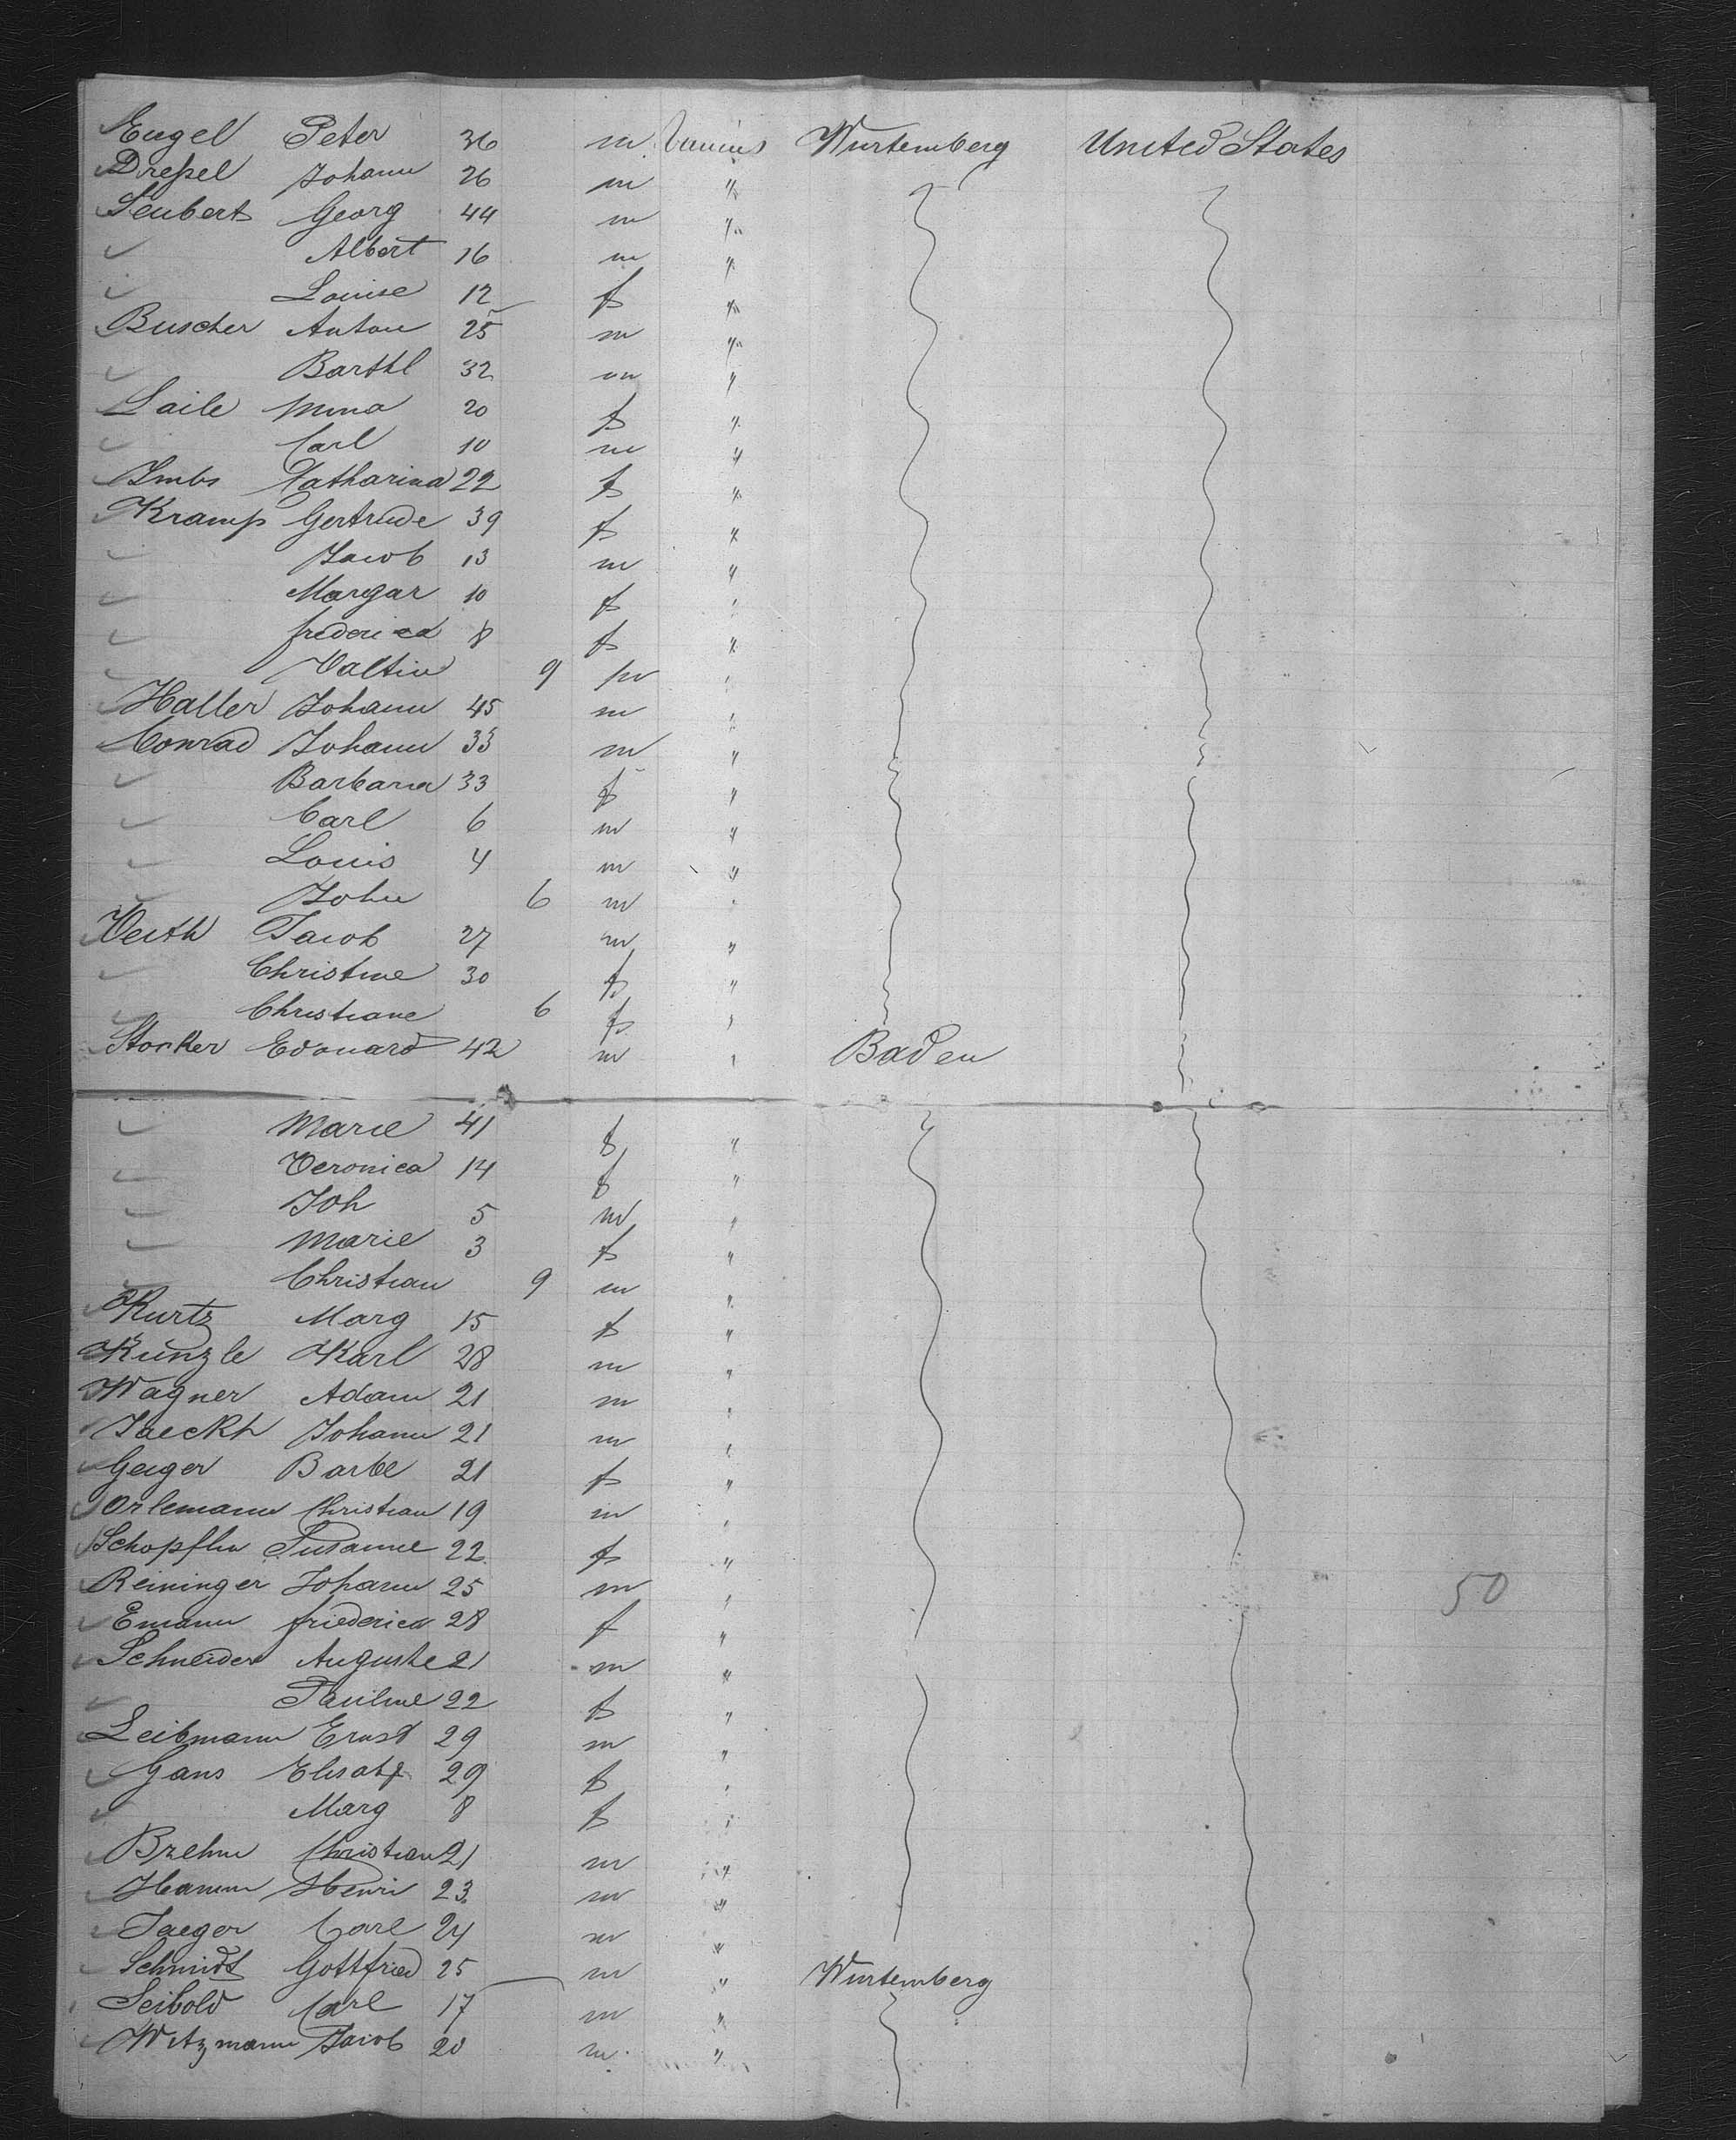 Engel Peter 36 m Various Wurtemberg United States
Dreßel Johann 26 m "
Seubert Georg 44 m "
Albert 16 m "
Louise 12 f "
Buscher Anton 25 m "
Barthl 32 m "
Laile Mina 20 f "
Carl 10 m "
Imbs Catharina 22 f "
Kramp Gertrude 39 f "
Jacob 13 m "
Margar 10 f "
Frederica 8 f "
Valtin 9 m "
Haller Johann 45 m "
Conrad Johann 33 m "
Barbara 33 f "
Carl 6 m "
Louis 4 m "
John 6 m "
Veith Jacob 27 m "
Christine 30 f "
Christiane 6 f "
Storker Edouard 42 m " Baden
Marie 41 f "
Veronica 14 f "
Joh 5 m "
Marie 3 f "
Christian 9 m "
Kurtz Marg 15 f "
Kunzle Karl 28 m "
Wagner Adam 21 m "
Jaeckh Johann 21 m "
Geiger Barbe 21 f "
Orlemann Christian 19 m "
Schopflin Susanne 22 f "
Reininger Johann 25 m " 50
Emann Friederica 28 f "
Schneider Auguste 21 m "
Pauline 22 f "
Leibmann Ernst 29 m "
Gans Elisabt 29 f "
Marg 8 f "
Brehm Christian 21 m "
Hamm Henri 23 m "
Jaeger Carl 24 m "
Schmidt Gottfried 25 m " Wurtemberg
Seibold Carl 17 m "
Witzmann Jacob 20 m "